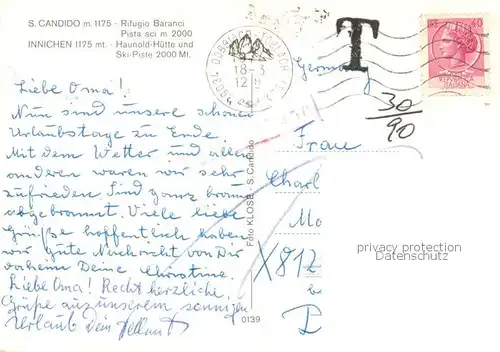 S. CANDIDO m. 1175 - Rifugio Baranci
Pista sci m. 2000
INNICHEN 1175 mt. - Haunold-Hütte und
Ski-Piste 2000 Mt.
Liebe Oma!
Nun sind unsere schönen
Urlaubstage zu Ende.
Mit dem Wetter und allem
anderen waren wir sehr
zufrieden. Sind ganz braun
abgebrannt. Viele liebe
Grüße hoffentlich haben
wir gute Nachricht von Dir
daheim Deine Christine.
Liebe Oma! Recht herzliche
Grüße aus unserem sonnigen
Urlaub Dein Hellmut
Foto KLOSE - S. Candido
0139
18-3
12
T
40
30/90
Germany
Frau
Charl
Mo
X817
privacy protection
Datenschutz